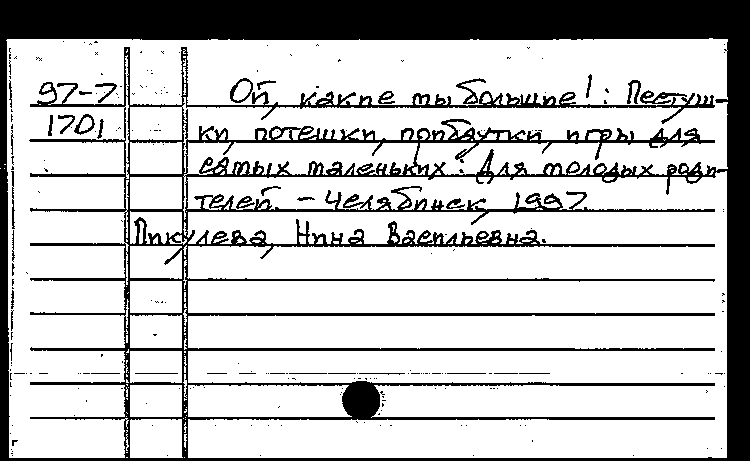 97-7 Ой, какие мы большие! : Пестуш-
1701 ки, потешки, прибаутки, игры для
самых маленьких : Для молодых роди-
телей. - Челябинск, 1997.
Пикулева, Нина Васильевна.